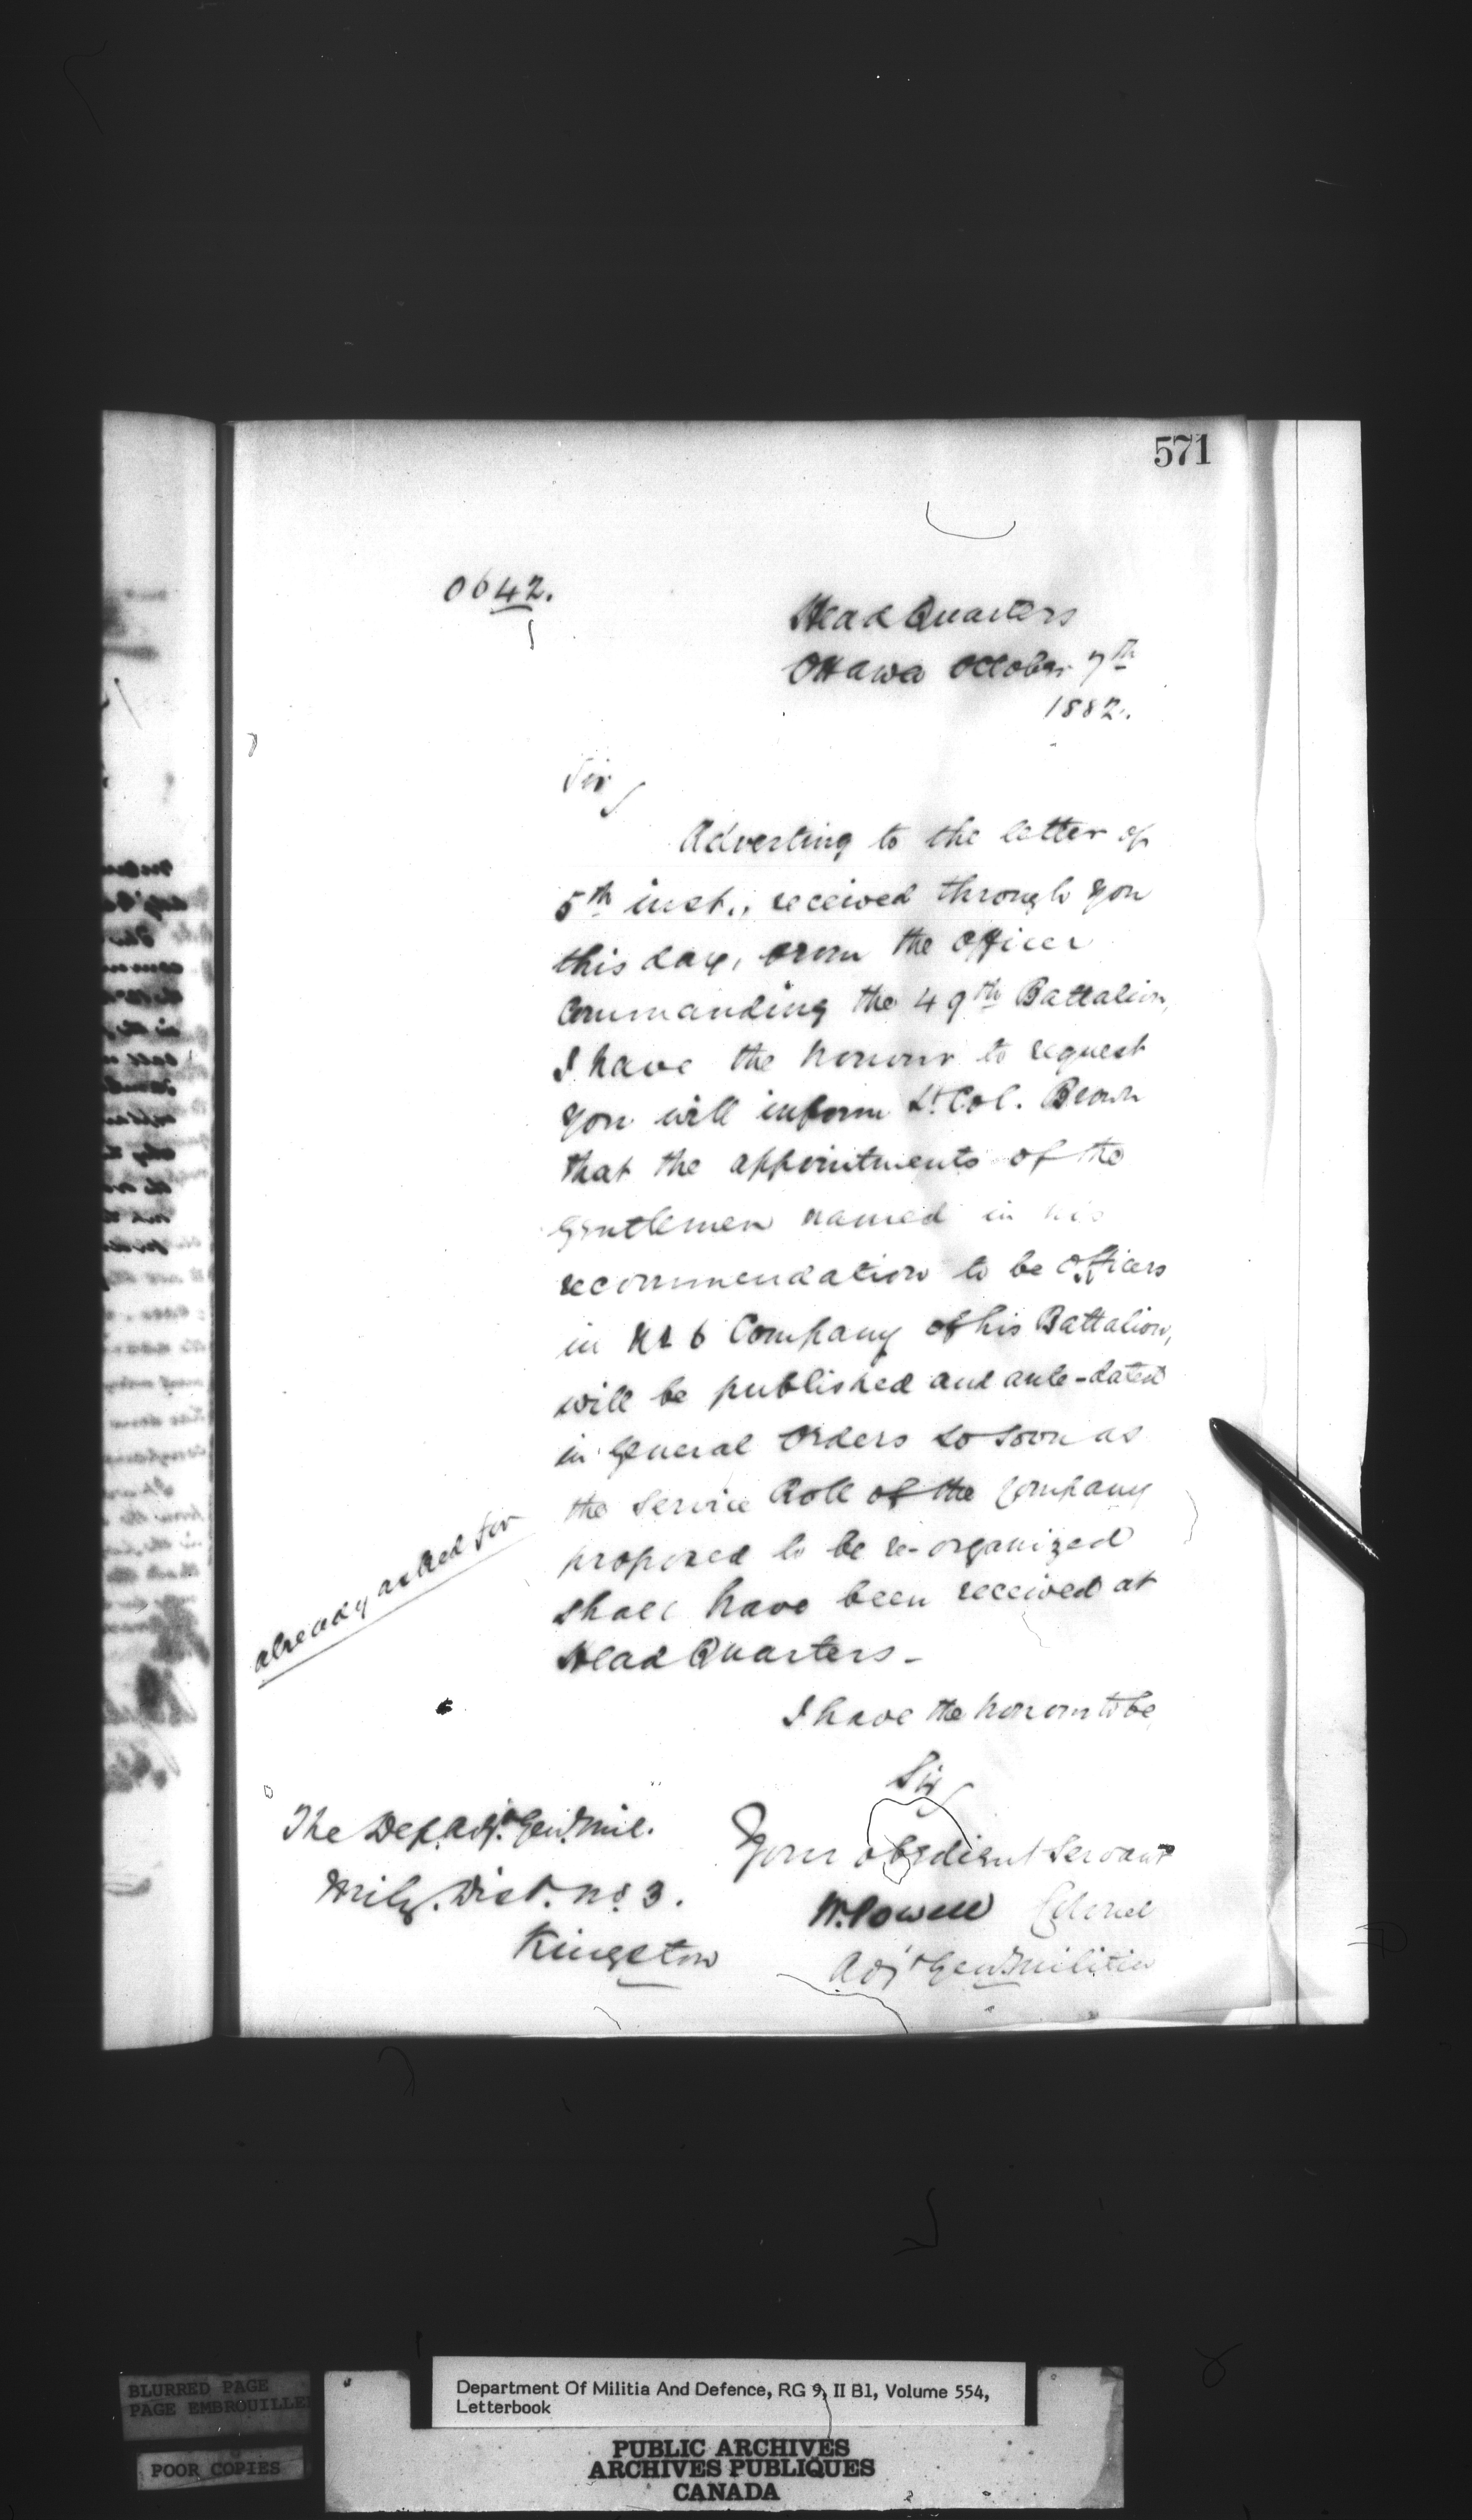 571
0642.
Head Quarters
Ottawa October 7th
1882.
Sir,
Adverting to the letter of
5th inst., received through you
this day, from the Officer
Commanding the 49th Battalion,
I have the honour to request
you will inform Lt. Col. Brown
that the appointments of the
Gentlemen named in his
recommendation to be Officers
in No 6 Company of his Battalion,
will be published and ante-dated
in General Orders so soon as
the Service Roll of the Company
proposed to be re-organized
shall have been received at
Head Quarters -
already asked for
I have the honour to be,
Sir,
Your obedient Servant
W. Powell Colonel
Adjt Genl Militia
The Dep. Adjt. Genl. Mil.
Mily. Dist. No. 3.
Kingston
BLURRED PAGE
PAGE EMBROUILLEE
POOR COPIES
Department Of Militia And Defence, RG 9, II B1, Volume 554,
Letterbook
PUBLIC ARCHIVES
ARCHIVES PUBLIQUES
CANADA